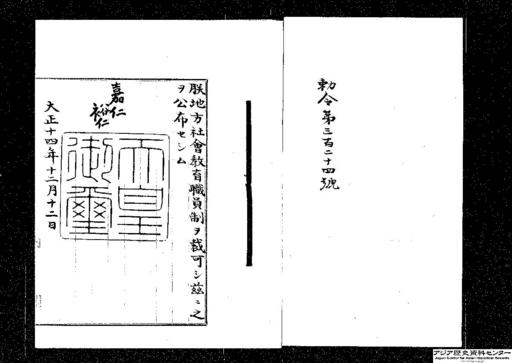 勅令第三百二十四號
朕地方社會教育職員制ヲ裁可シ茲ニ之
ヲ公布セシム
嘉仁
裕仁
天皇御璽
大正十四年十二月十二日
アジア歴史資料センター
Japan Center for Asian Historical Records